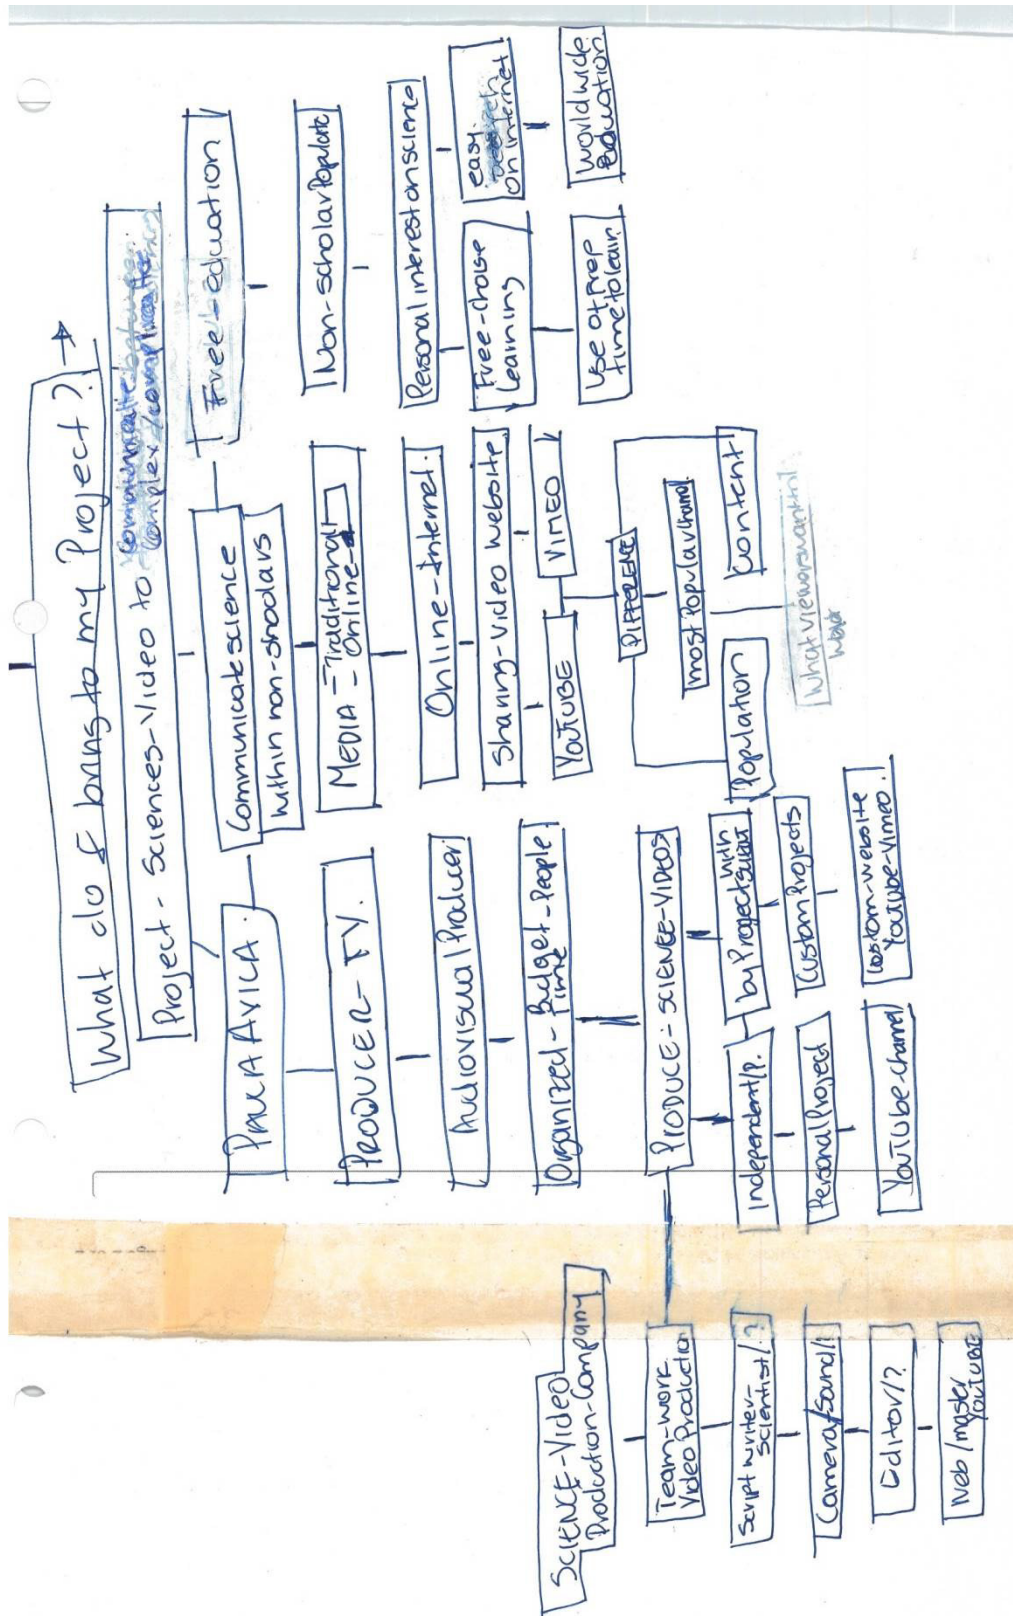 What do I bring to my Project?
Project - Sciences-Video to
complex/complicate
PAULA AVILA.
Communicate science
within non-shcolars
Free-education
PRODUCER-TV.
MEDIA - Traditional
- Online
Non-scholar Populatic
Audiovisual Producer
Online-Internet.
Personal interest on science
Organized - Budget - People
Time
Sharing-Video Website
Free-Choise
Learning
easy.
on internet
PRODUCE - SCIENCE-VIDEOS
YouTUBE
VIMEO
Use of prep
time to learn
Worldwide
education
DIFFERENCE
most Popular Channel
Population
Content
What viewers want
Independent/P.
by Project
with
Personal Project
Custom Projects
YouTube-channel
Costom-website
YouTube-Vimeo..
SCIENCE-Video
Production-Company
Team-work
Video Production
Script writer-
Scientist/?
Camera/Sound/?
Editor/?
Web/master
YouTUBE